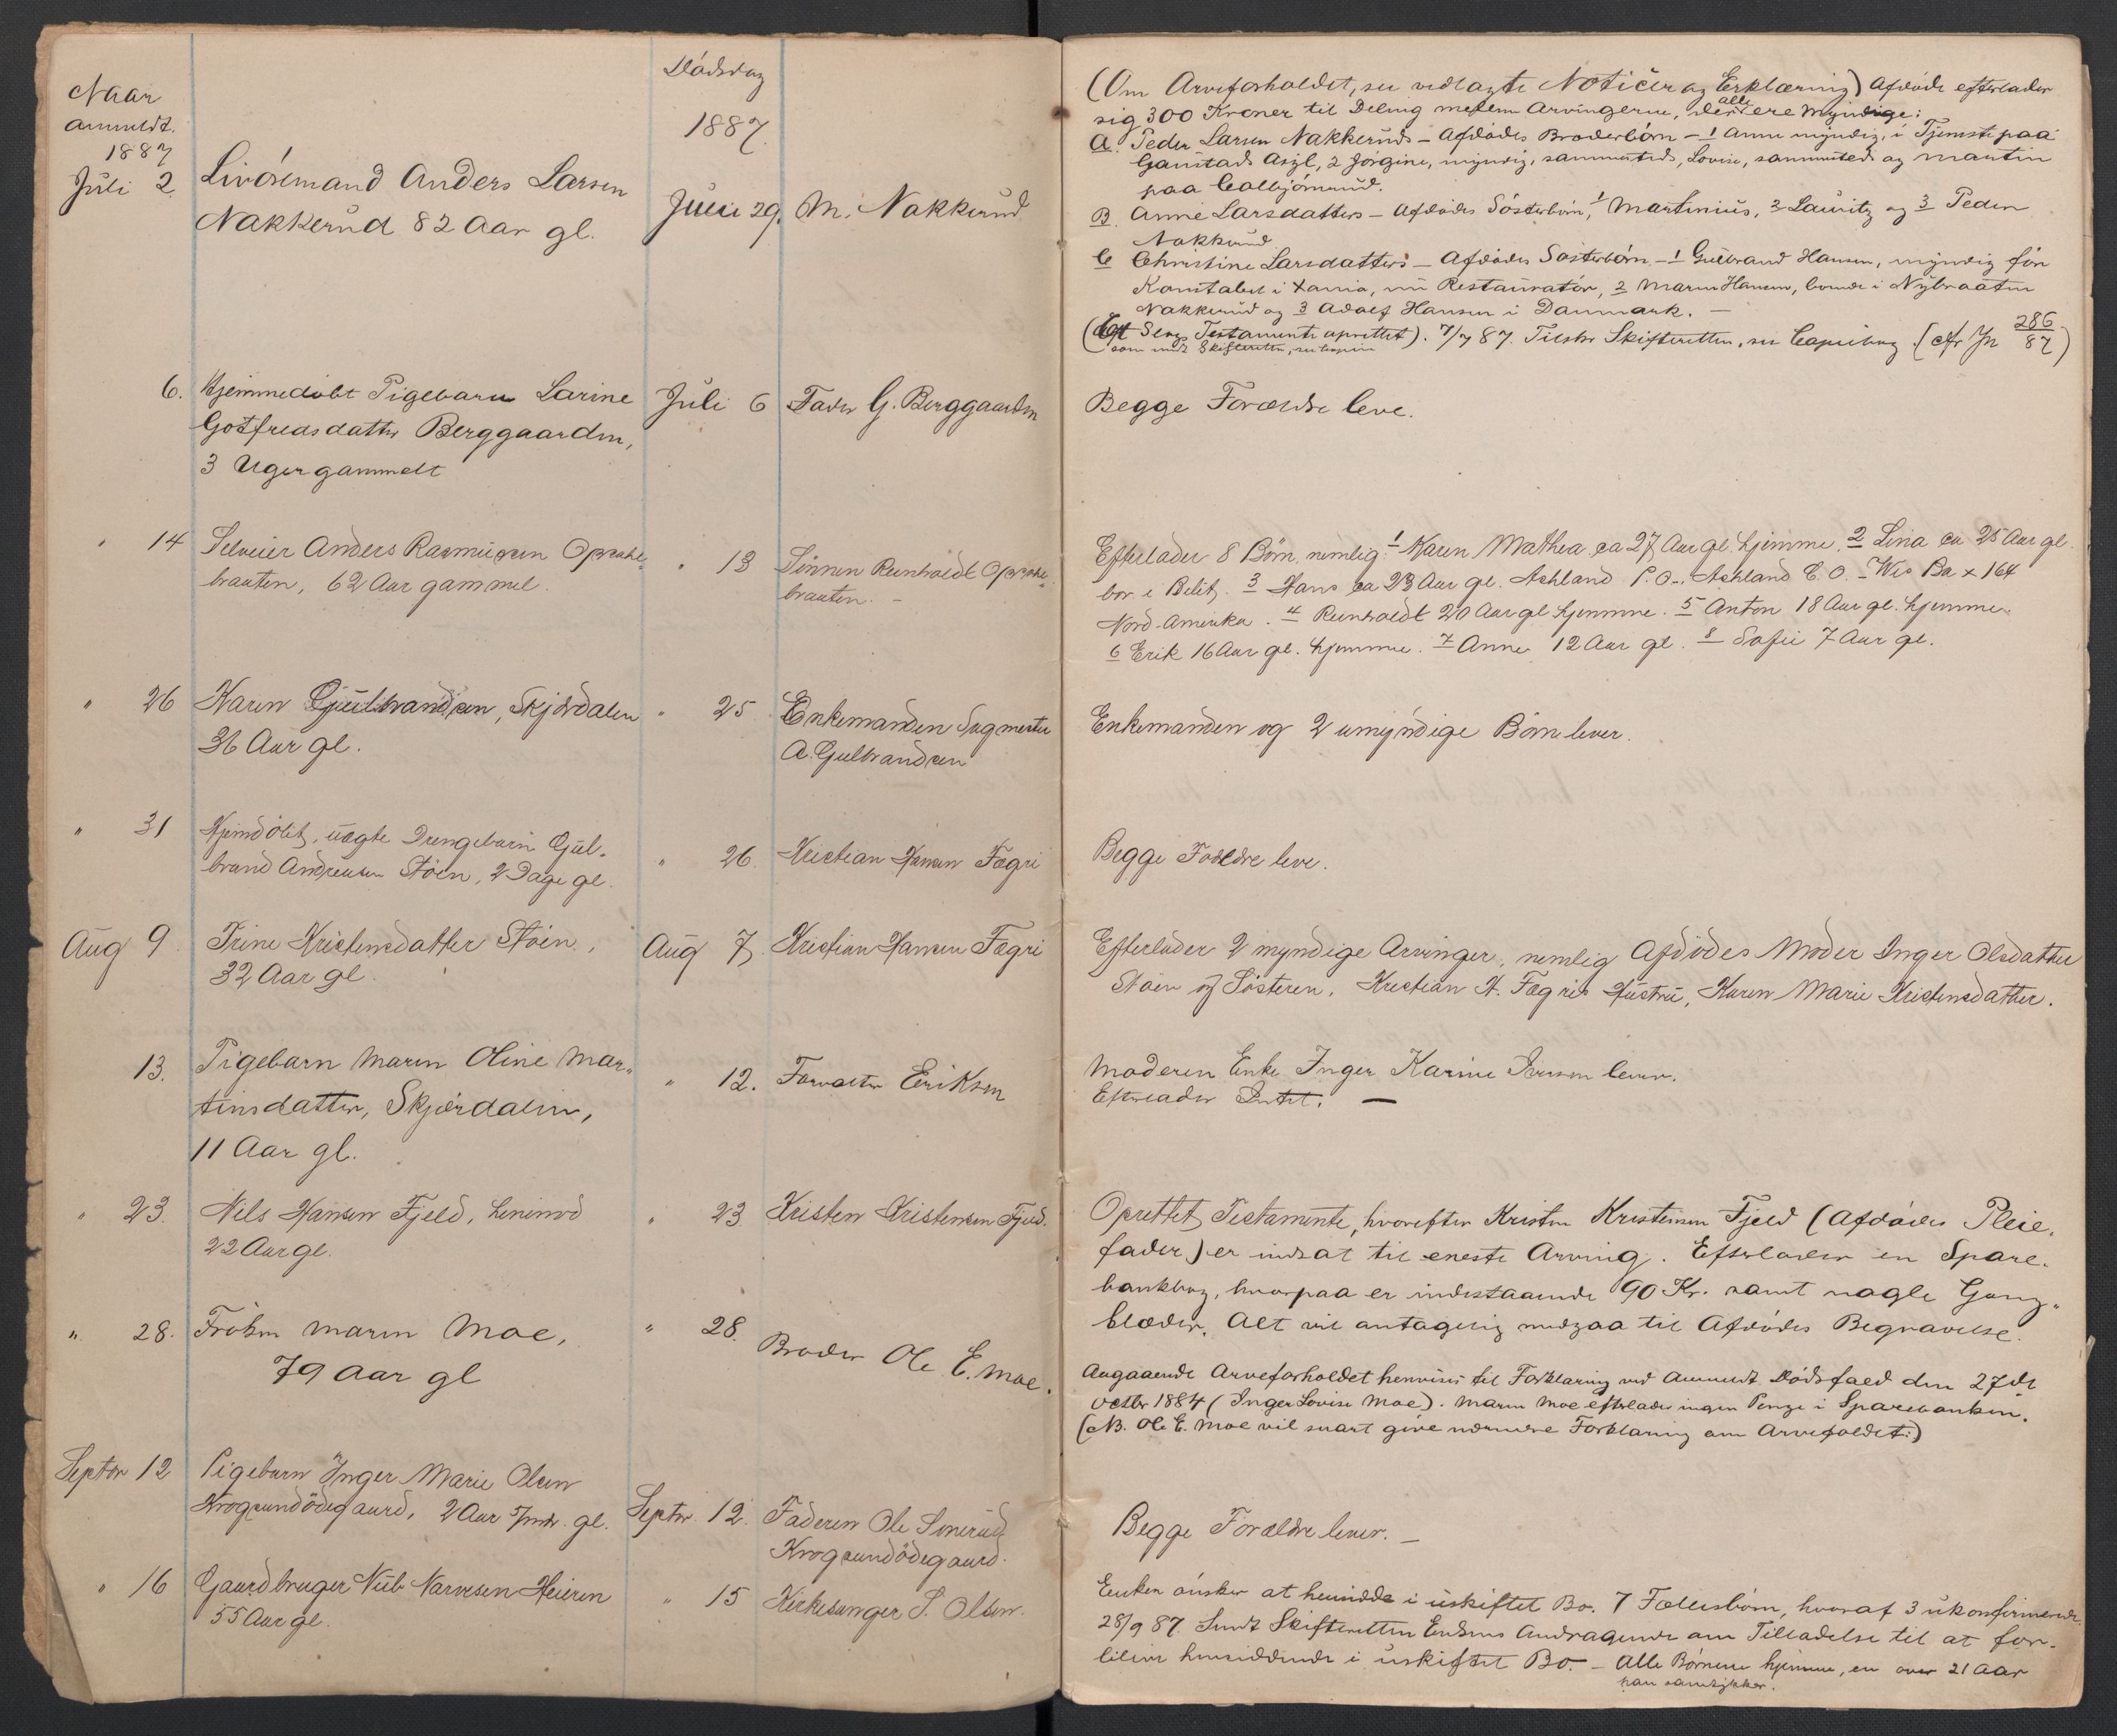 Naar
anmeldt.
1887
Juli 2
Dødsdag
1887.
Livøremand Anders Larsen
Nakkerud 82 Aar gl.
Juni 29. M. Nakkerud
(Om Arveforholdet, se vedlagte Noticer og Erklæring) Afdøde efterlader
sig 300 Kroner til Deling mellem Arvingerne, alle Myndige:
A. Peder Larsen Nakkeruds - Afdødes Broderbørn - 1 Anne myndig, i Tjeneste paa
Gaustads Asyl, 2 Jørgine, myndig, sammesteds, Lovise, sammesteds og Martin
paa Colbjørnrud.
B. Anne Larsdatters - Afdødes Søsterbørn, 1 Martinius, 2 Lauritz og 3 Peder
Nakkerud
C Christine Larsdatters - Afdødes Søsterbørn - 1 Gulbrand Hansen, myndig før
Konstabel i Xania, nu Restauratør, 2 Maren Hansen, boende i Nybraaten
Nakkerud og 3 Adolf Hansen i Danmark. -
Testamente oprettet). 7/7 87. Tilskr Skifteretten, se Copibog. (cfr Jn 286/87)
6. Hjemmedøbt Pigebarn Larine
Gotfredsdatter Berggaarden,
3 Uger gammelt
Juli 6 Fader G. Berggaarden
Begge Forældre leve.
" 14 Selveier Anders Rasmussen Opsahl-
braaten, 62 Aar gammel.
" 13 Sønnen Reinholdt Opsahl-
braaten. -
Efterlader 8 Børn, nemlig: 1 Karen Mathea ca 27 Aar gl. hjemme. 2 Lina ca 25 Aar gl.
bor i Belit. 3 Hans ca 23 Aar gl. Ashland P.O. Ashland C.O. - Wis Bax 164
Nord-Amerika. 4 Reinholdt 20 Aar gl hjemme. 5 Anton 18 Aar gl. hjemme.
6 Erik 16 Aar gl. hjemme. 7 Anne 12 Aar gl. 8 Sofie 7 Aar gl.
" 26 Karen Gulbrandsen, Skjærdalen
36 Aar gl.
" 25 Enkemanden Sagmester
A. Gulbrandsen
Enkemanden og 2 umyndige Børn lever.
" 31 Hjemdøbt, uægte Drengebarn Gul-
brand Andreasen Støen, 2 Dage gl.
" 26. Kristian Hansen Fægri
Begge Forældre leve.
Aug 9 Trine Kristensdatter Støen,
32 Aar gl.
Aug 7. Kristian Hansen Fægri
Efterlader 2 myndige Arvinger, nemlig Afdødes Moder Inger Olsdatter
Støen og Søsteren, Kristian H. Fægris Hustru, Karen Marie Kristensdatter.
13. Pigebarn Maren Oline Mar-
tinsdatter, Skjærdalen,
11 Aar gl.
" 12. Forvalter Eriksen
Moderen Enke Inger Karine Iversen lever.
Efterlader Intet. -
" 23. Nils Hansen Fjeld,
22 Aar gl.
" 23. Kristen Kristensen Fjeld.
Oprettet Testamente, hvorefter Kristen Kristensen Fjeld (Afdødes Pleie-
fader) er indsat til eneste Arving. Efterlader en Spare-
bankbog, hvorpaa er indestaaende 90 Kr. samt nogle Gang-
klæder. Alt vil antagelig medgaa til Afdødes Begravelse.
" 28. Frøken Maren Moe,
79 Aar gl
" 28. Broder Ole E. Moe.
Angaaende Arveforholdet henvises til Forklaring ved Anmeldt Dødsfald den 27de
Octbr 1884 (Inger Lovise Moe). Maren Moe efterlader ingen Penge i Sparebanken.
(NB. Ole E. Moe vil snart give nærmere Forklaring om Arvefoldet:)
Septbr 12 Pigebarn Inger Marie Olsen
Krogsundødegaard, 2 Aar 5 mdr. gl.
Septbr. 12. Faderen Ole Sonerud
Krogsundødegaard.
Begge Forældre lever. -
" 16 Gaardbruger Nils Narvesen Heieren
55 Aar gl.
" 15 Kirkesanger S. Olsen.
Enken ønsker at hensidde i uskiftet Bo. 7 Fællesbørn, hvoraf 3 ukonfirmerede.
28/9 87. Sendt Skifteretten Enkens Andragende om Tilladelse til at for-
blive hensiddende i uskiftet Bo. - Alle Børnene hjemme, en over 21 Aar
han samtykker.